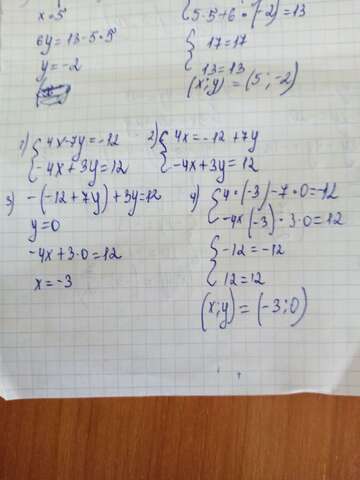 x=5
6y=13-5·5
y=-2
{5·5+6·(-2)=13
{17=17
13=13
(x;y)=(5;-2)
1) {4x-7y=-12
-4x+3y=12
2) {4x=-12+7y
-4x+3y=12
3) -(-12+7y)+3y=12
y=0
-4x+3·0=12
x=-3
4) {4·(-3)-7·0=-12
-4x(-3)-3·0=12
{-12=-12
12=12
(x;y)=(-3;0)